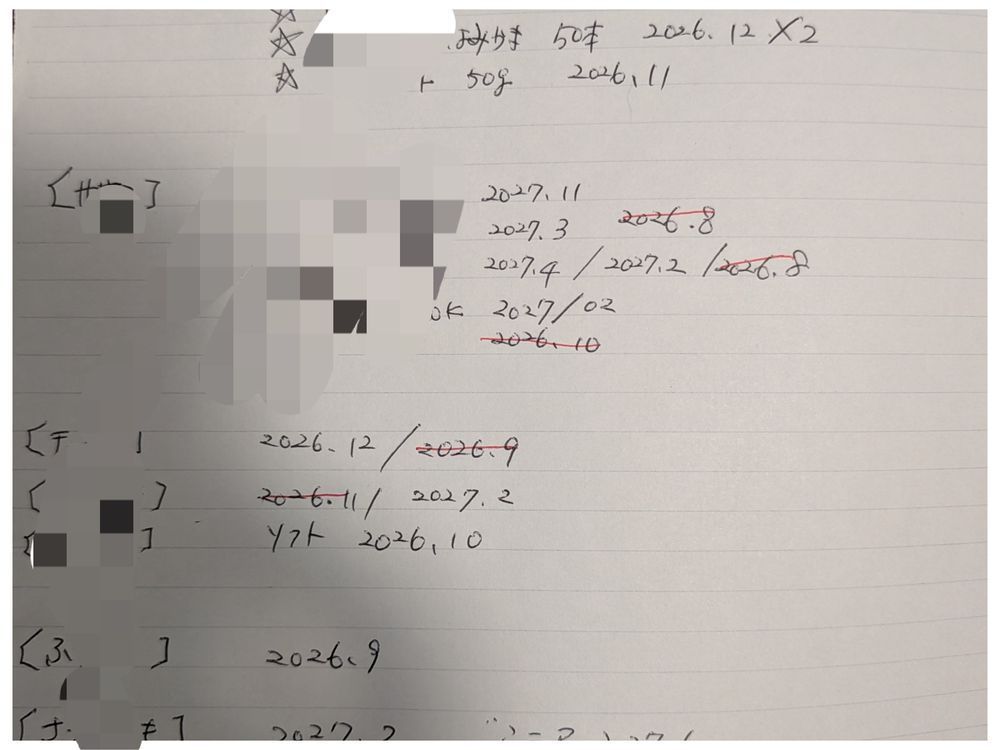 ☆
☆ 50本 2026.12 ×2
☆ ト 50g 2026.11
[サ ] 2027.11
2027.3 2026.8
2027.4 / 2027.2 / 2026.8
OK 2027/02
2026.10
[チ ] 2026.12 / 2026.9
[ ] 2026.11 / 2027.2
[ ] ソフト 2026.10
[ふ ] 2026.9
2027.2